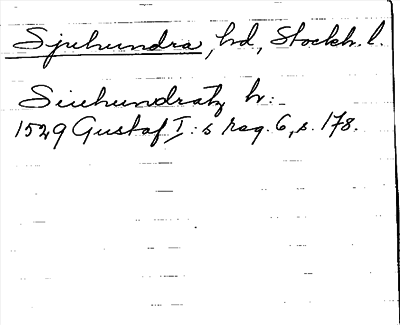 Sjuhundra, hd, Stockh. l.
Siuhundratz h:
1529 Gustaf I:s reg. 6, s. 178.